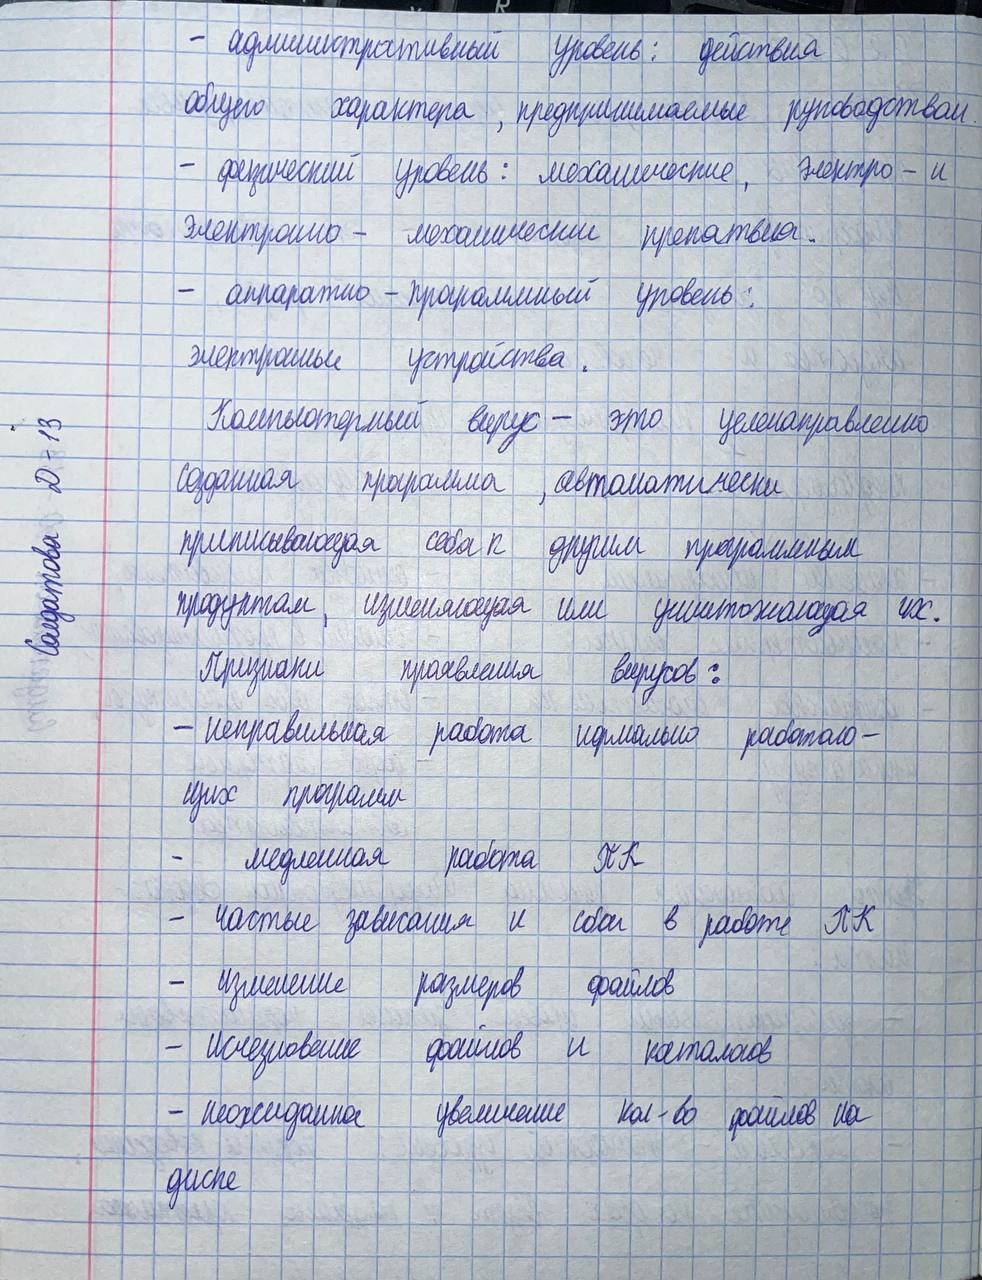 - административный уровень: действия
общего характера, предпринимаемые руководством.
- физический уровень: механические, электро - и
электронно - механические препятвия.
- аппаратно - программный уровень:
электронные устройства.
Компьютерный вирус - это целенаправленно
созданная программа, автоматически
приписывающая себя к другим программным
продуктам, изменяющая или уничтожающая их.
Признаки проявления вирусов:
- неправильная работа нормально работаю-
щих программ
- медленная работа ПК
- частые зависания и сбои в работе ПК
- изменение размеров файлов
- исчезновение файлов и каталогов
- неожиданное увеличение кол-во файлов на
диске
Солдатова Д-13